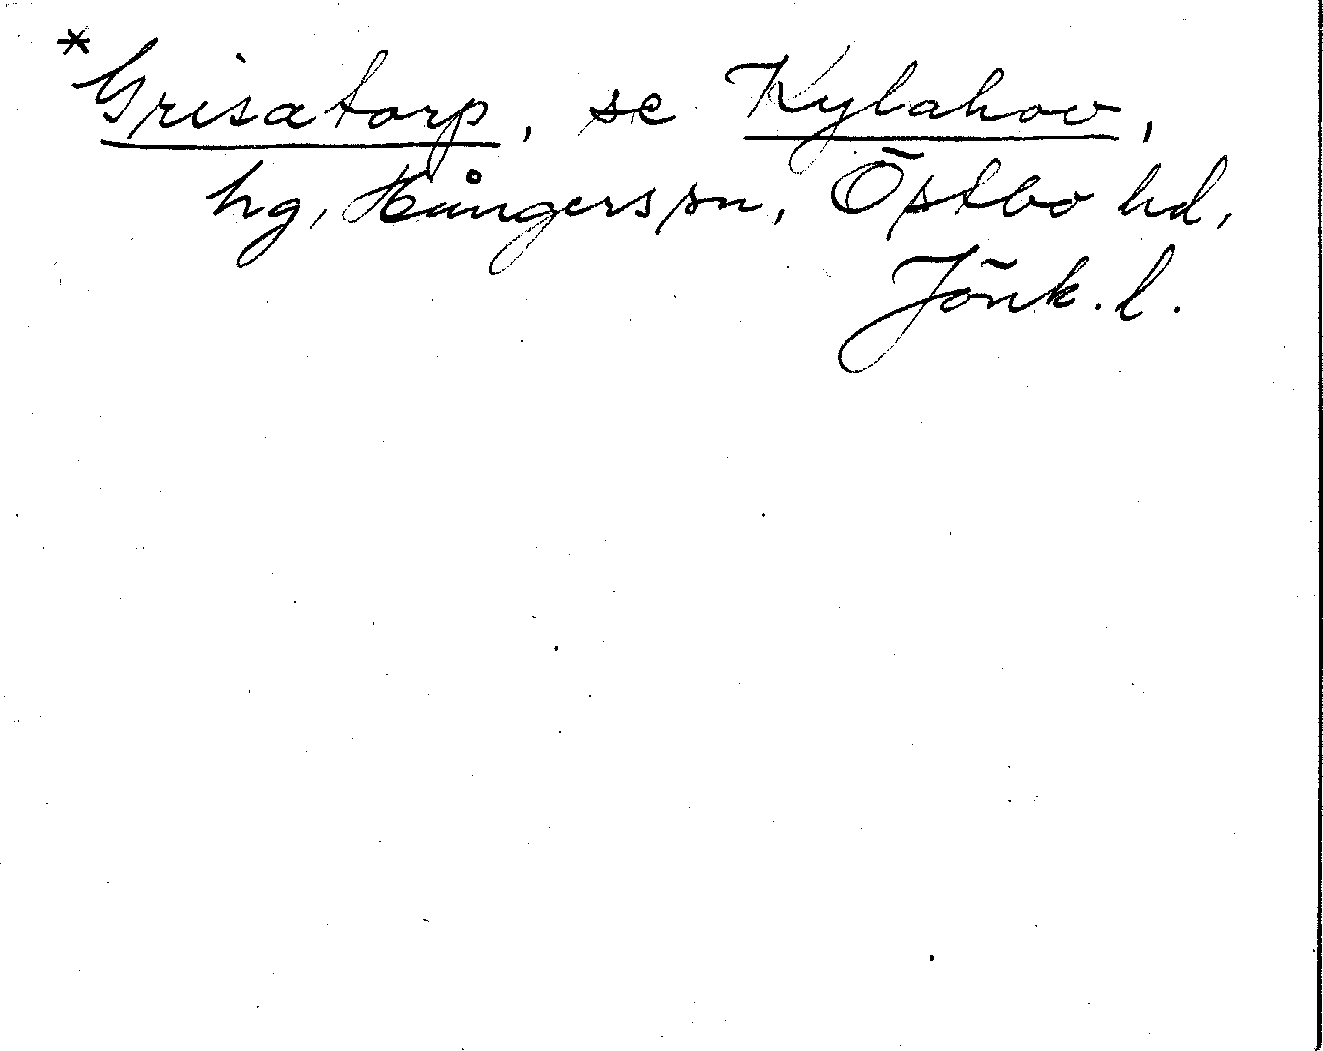 *Grisatorp, se Kylahov,
hg, Kångers sn, Östbo hd,
Jönk. l.